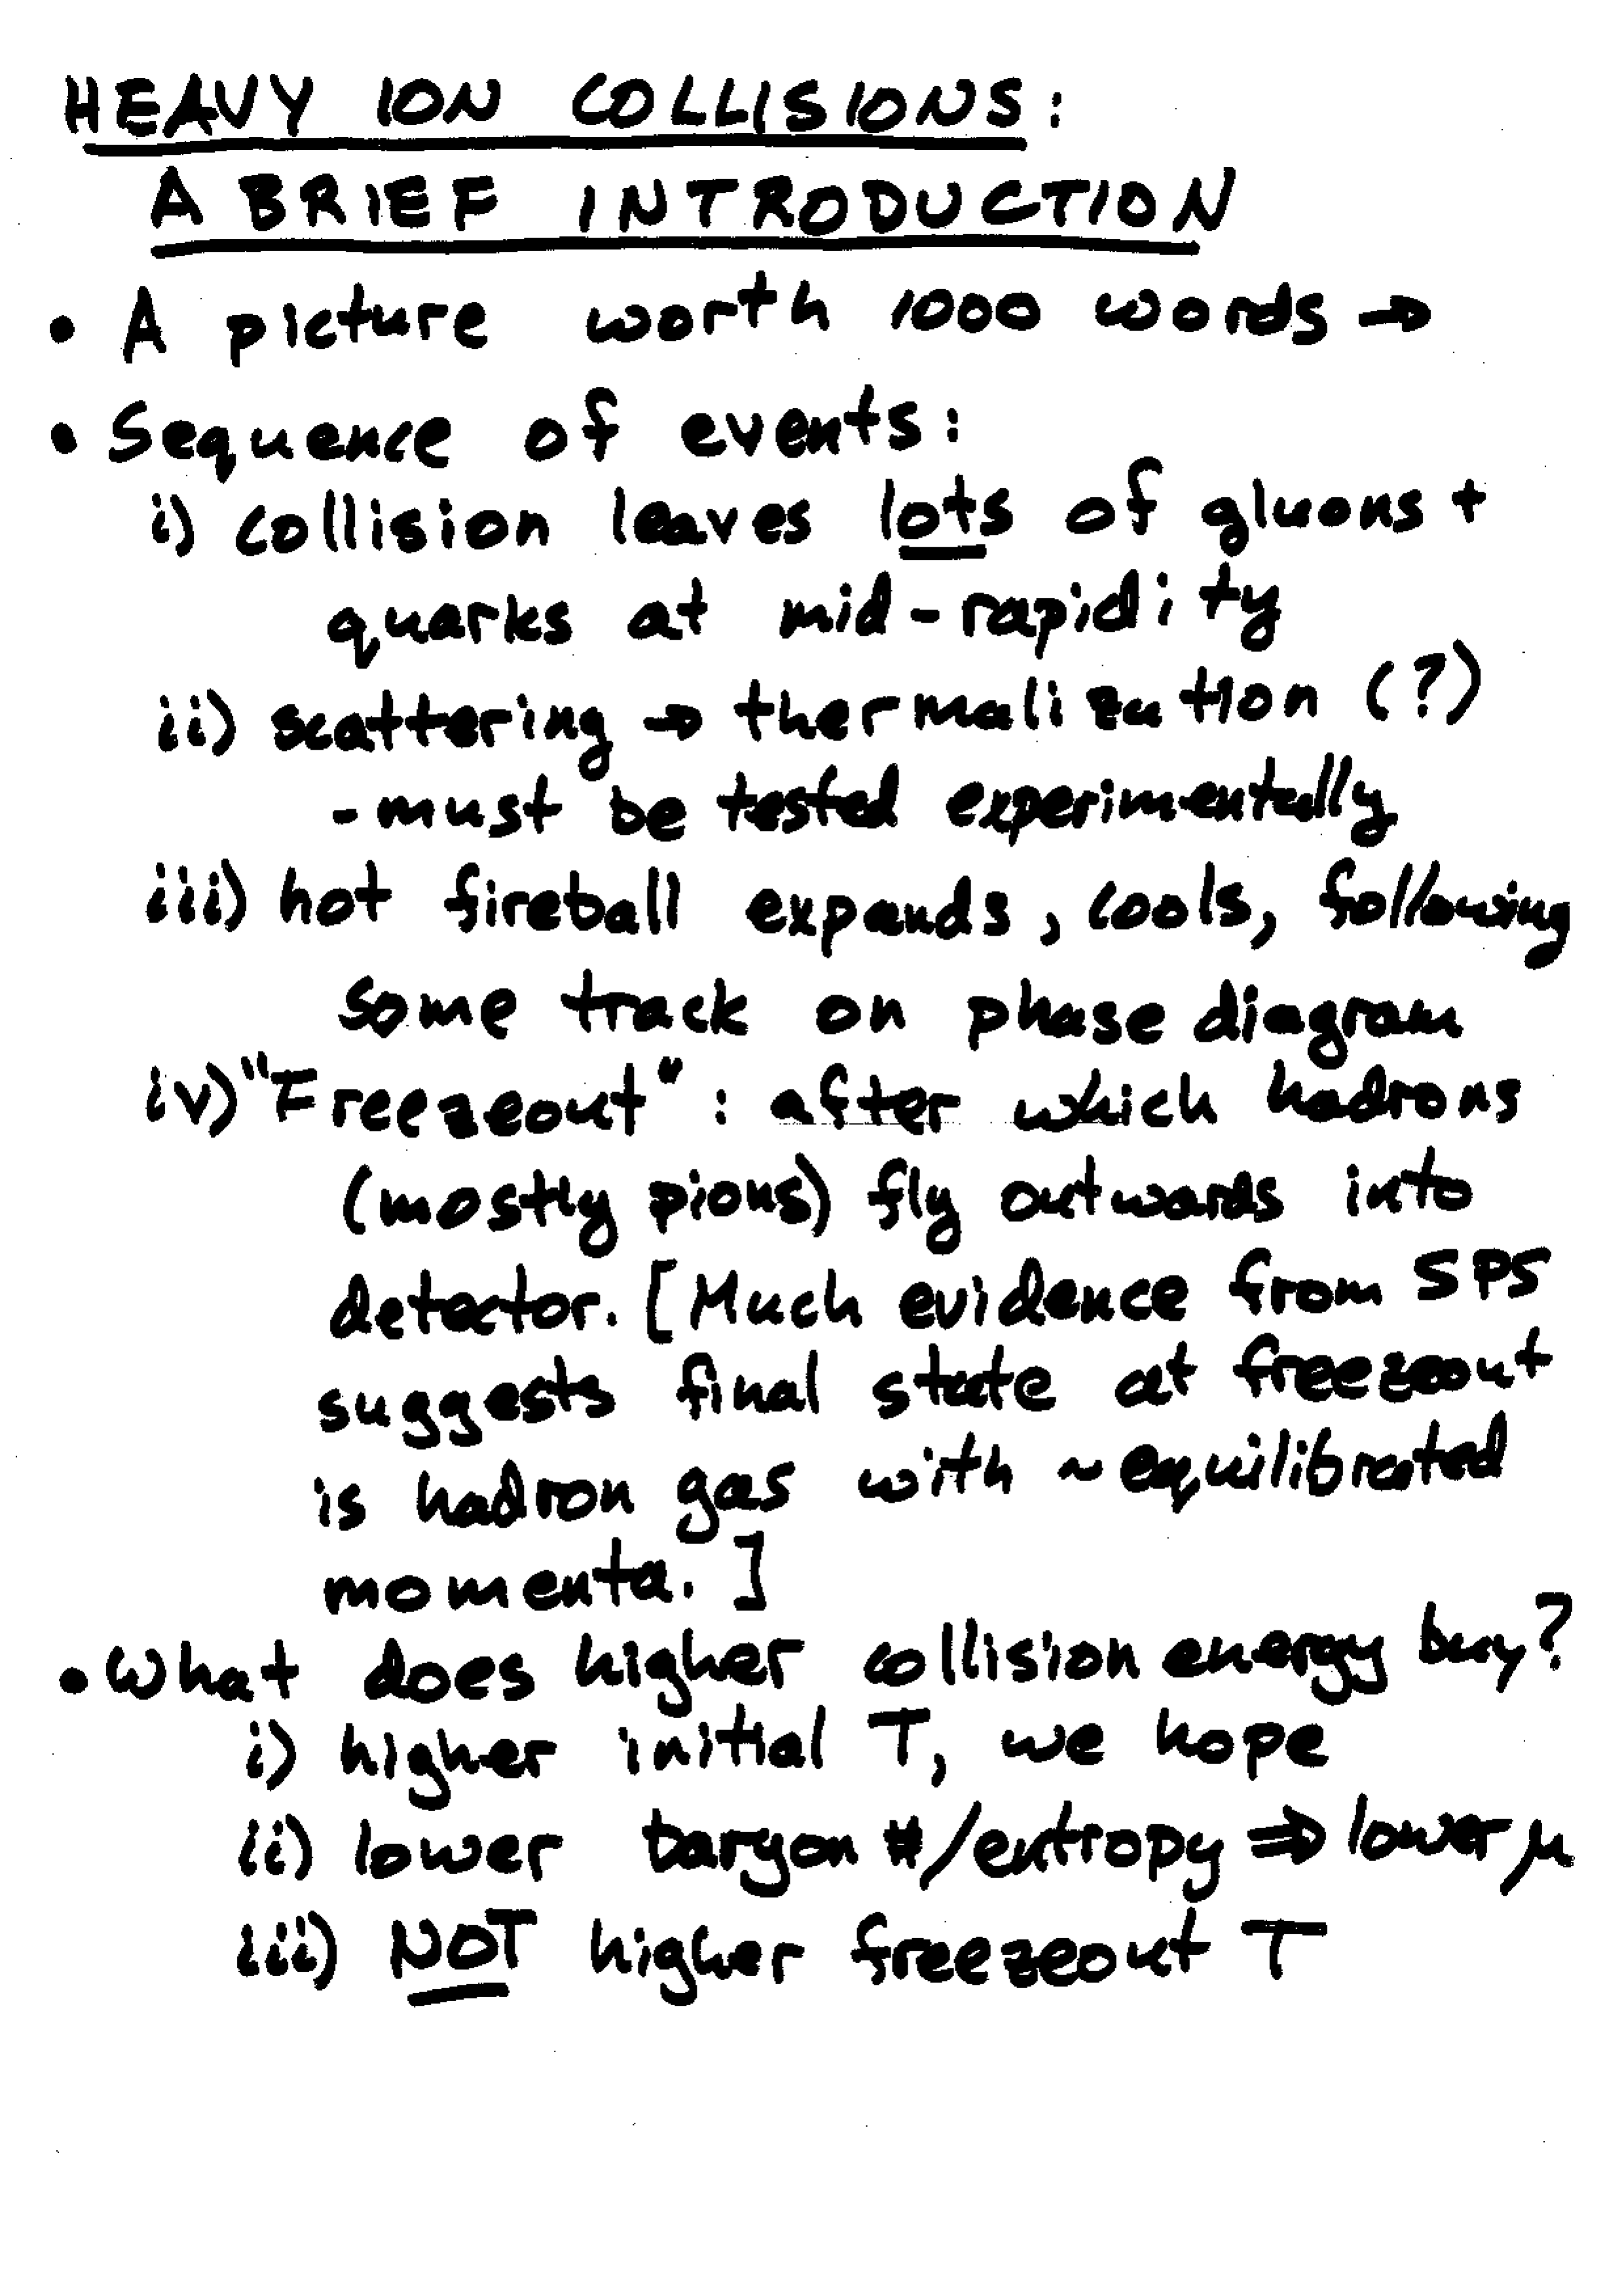 HEAVY ION COLLISIONS:
A BRIEF INTRODUCTION
• A picture worth 1000 words →
• Sequence of events:
i) collision leaves lots of gluons +
quarks at mid-rapidity
ii) scattering → thermalization (?)
- must be tested experimentally
iii) hot fireball expands, cools, following
some track on phase diagram
iv) "Freezeout": after which hadrons
(mostly pions) fly outwards into
detector. [Much evidence from SPS
suggests final state at freezeout
is hadron gas with ~equilibrated
momenta.]
• What does higher collision energy buy?
i) higher initial T, we hope
ii) lower baryon #/entropy ⇒ lower μ
iii) NOT higher freezeout T